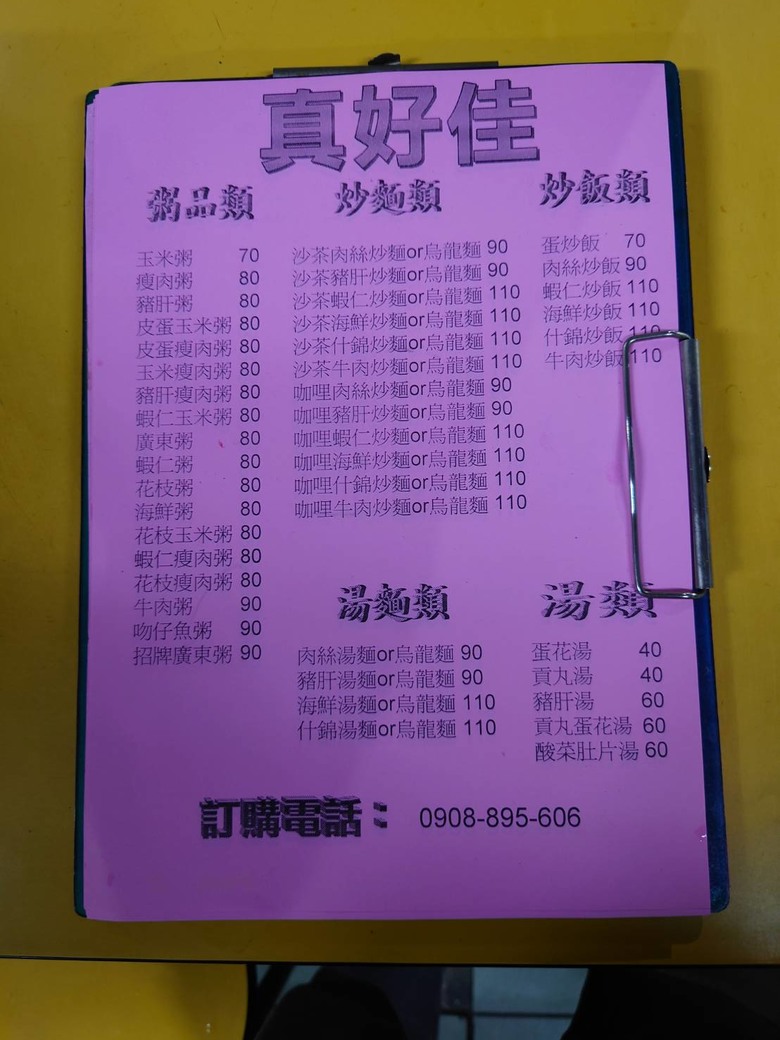 真好佳
粥品類
玉米粥 70
瘦肉粥 80
豬肝粥 80
皮蛋玉米粥 80
皮蛋瘦肉粥 80
玉米瘦肉粥 80
豬肝瘦肉粥 80
蝦仁玉米粥 80
廣東粥 80
蝦仁粥 80
花枝粥 80
海鮮粥 80
花枝玉米粥 80
蝦仁瘦肉粥 80
花枝瘦肉粥 80
牛肉粥 90
吻仔魚粥 90
招牌廣東粥 90
炒麵類
沙茶肉絲炒麵or烏龍麵 90
沙茶豬肝炒麵or烏龍麵 90
沙茶蝦仁炒麵or烏龍麵 110
沙茶海鮮炒麵or烏龍麵 110
沙茶什錦炒麵or烏龍麵 110
沙茶牛肉炒麵or烏龍麵 110
咖哩肉絲炒麵or烏龍麵 90
咖哩豬肝炒麵or烏龍麵 90
咖哩蝦仁炒麵or烏龍麵 110
咖哩海鮮炒麵or烏龍麵 110
咖哩什錦炒麵or烏龍麵 110
咖哩牛肉炒麵or烏龍麵 110
炒飯類
蛋炒飯 70
肉絲炒飯 90
蝦仁炒飯 110
海鮮炒飯 110
什錦炒飯 110
牛肉炒飯 110
湯麵類
肉絲湯麵or烏龍麵 90
豬肝湯麵or烏龍麵 90
海鮮湯麵or烏龍麵 110
什錦湯麵or烏龍麵 110
湯類
蛋花湯 40
貢丸湯 40
豬肝湯 60
貢丸蛋花湯 60
酸菜肚片湯 60
訂購電話： 0908-895-606